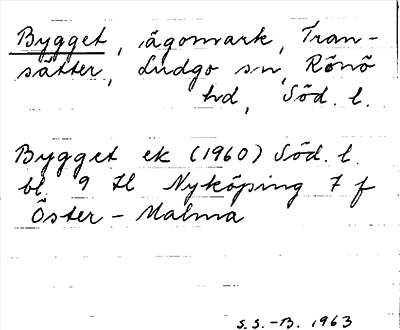 Bygget, ägomark, Tran-
sätter, Ludgo sn, Rönö
hd, Söd. l.
Bygget ek (1960) Söd. l.
bl. 9 H Nyköping 7 f
Öster-Malma
S.S.-B. 1963